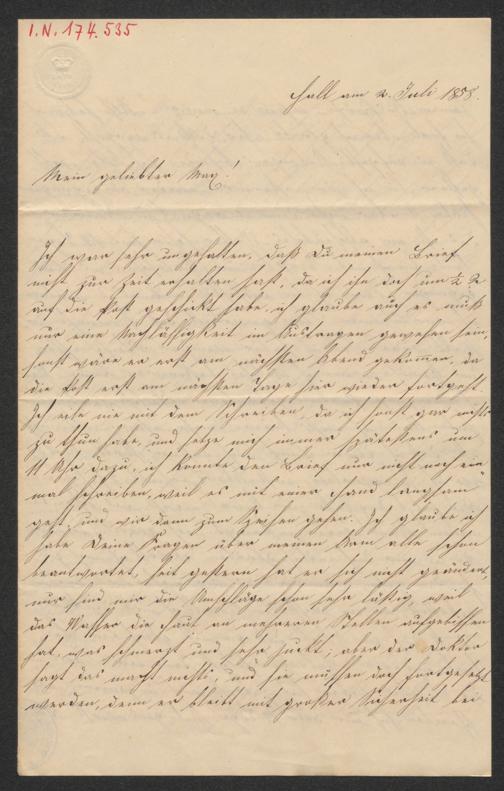 I.N. 174.535
Hall am 2. Juli 1858.
Mein geliebter Max!
Ich war sehr ungehalten, daß Du meinen Brief
nicht zur Zeit erhalten hast, da ich ihn doch um ½ 2
auf die Post geschickt habe, ich glaube auch es muß
nur eine Nachlässigkeit im Austragen gewesen sein,
sonst wäre er erst am nächsten Abend gekommen, da
die Post erst am nächsten Tage hier wieder fortgeht.
Ich eile nie mit dem Schreiben, da ich sonst gar nichts
zu thun habe, und setze mich immer spätestens um
11 Uhr dazu, ich konnte den Brief nur nicht noch ein
mal schreiben, weil es mit einer Hand langsam
geht, und wir dann zum Speisen gehen. Ich glaube ich
habe Deine Fragen über meinen Arm alle schon
beantwortet, seit gestern hat er sich nicht geändert,
nur sind mir die Umschläge schon sehr lästig, weil
das Wasser die Haut an mehreren Stellen aufgebissen
hat, was schmerzt und sehr juckt; aber der Doktor
sagt das macht nichts, und sie müssen doch fortgesetzt
werden, denn er bleibt mit großer Sicherheit bei